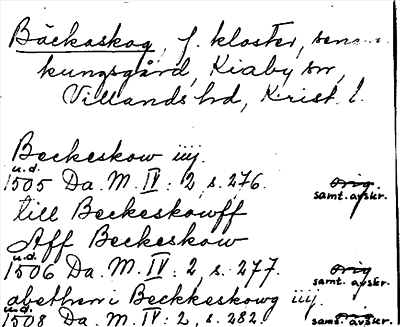 Bäckaskog, f. kloster, sen
kungsgård, Kiaby sn,
Villands hd, Krist. l.
Beckeskow iiij.
u.d.
1505 Da. M. IV: 2, s. 276. orig
samt. avskr.
till Beckeskowff
Aff Beckeskow
u.d.
1506 Da. M. IV: 2, s. 277. orig
samt. avskr.
abethen i Beckkeskowg iiij.
u.d.
1508 Da. M. IV: 2, s. 282. orig
samt. avskr.